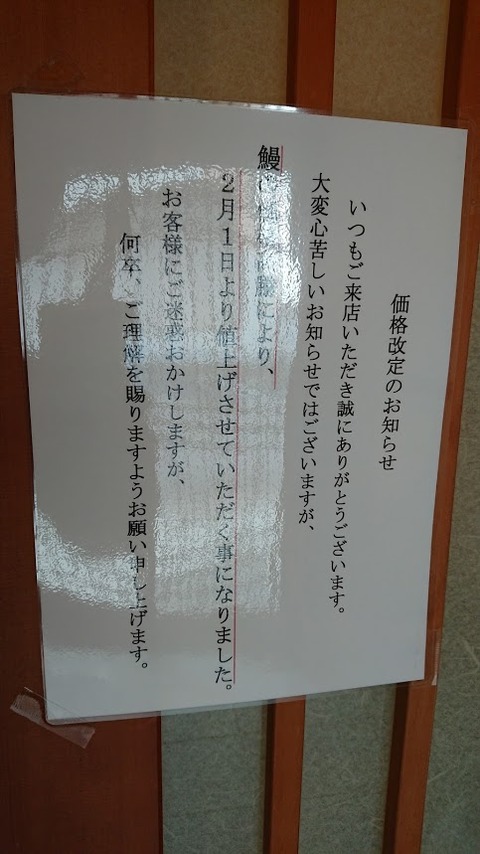 価格改定のお知らせ
いつもご来店いただき誠にありがとうございます。
大変心苦しいお知らせではございますが、
鰻の価格高騰により、
2月1日より値上げさせていただく事になりました。
お客様にご迷惑おかけしますが、
何卒、ご理解を賜りますようお願い申し上げます。